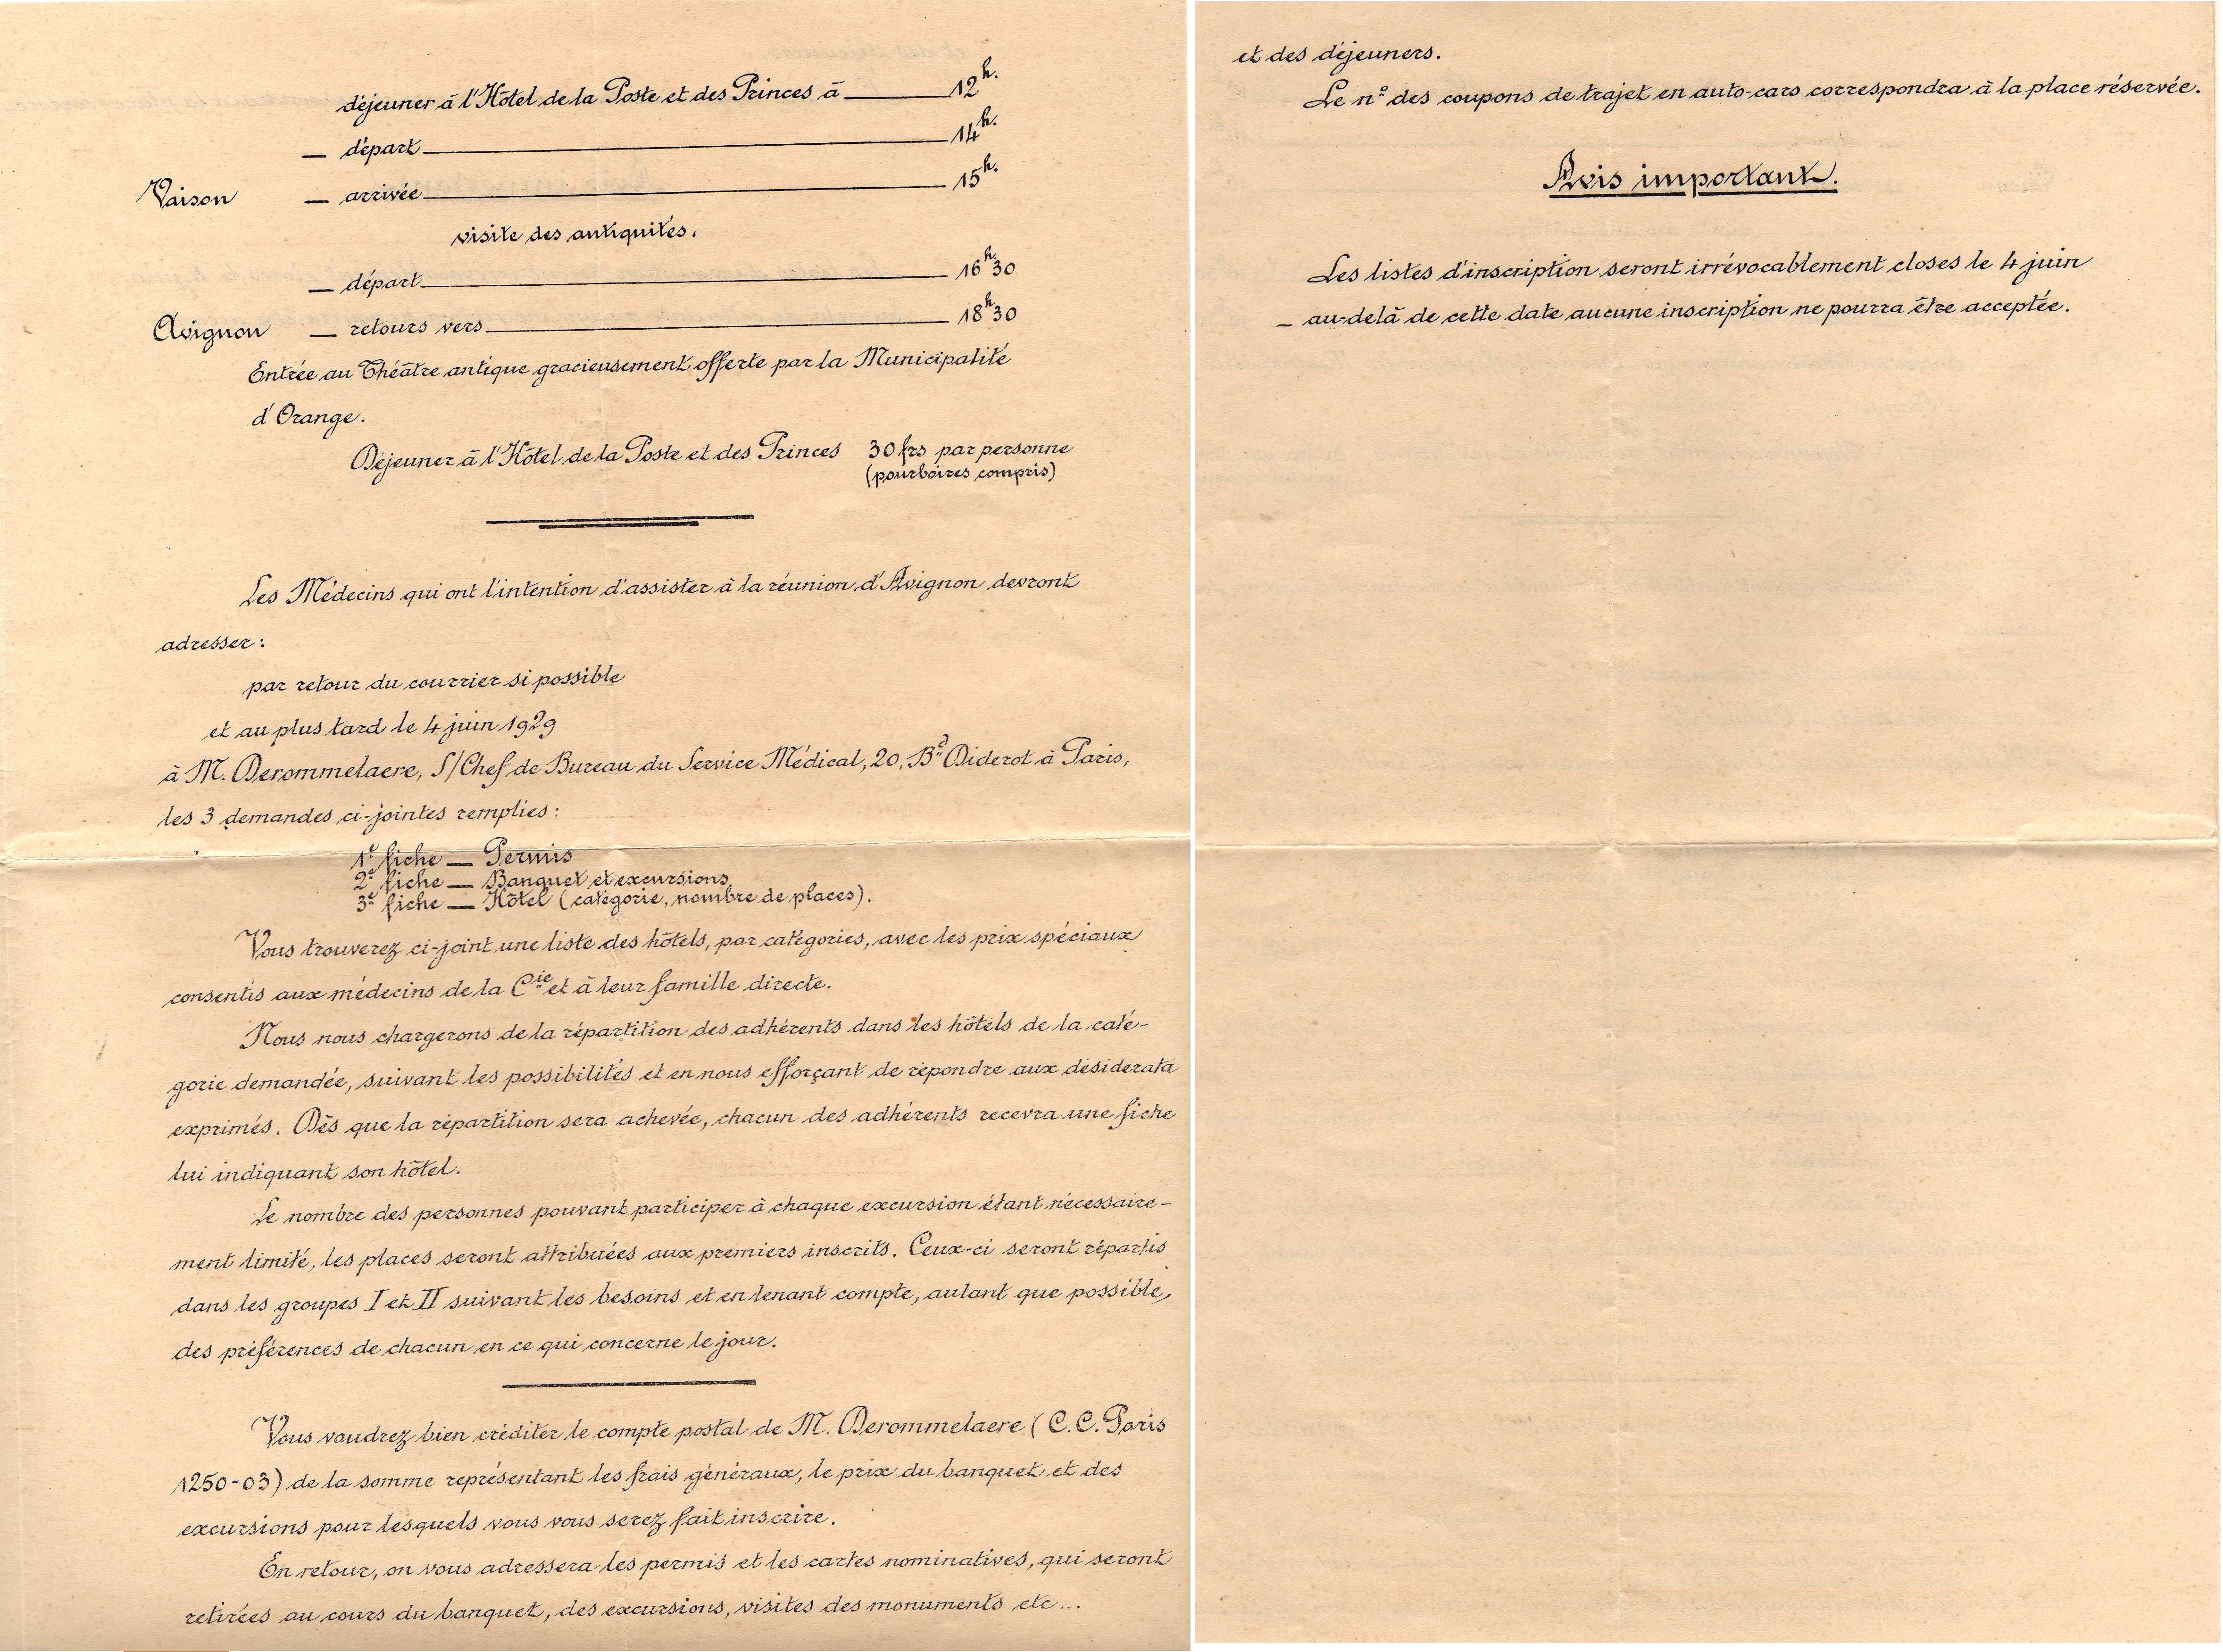 déjeuner à l'Hôtel de la Poste et des Princes à ______ 12h.
— départ ______ 14h.
Vaison — arrivée ______ 15h.
visite des antiquités.
— départ ______ 16h.30
Avignon — retours vers ______ 18h30
Entrée au Théâtre antique gracieusement offerte par la Municipalité
d'Orange.
Déjeuner à l'Hôtel de la Poste et des Princes 30 frs par personne
(pourboires compris)
Les Médecins qui ont l'intention d'assister à la réunion d'Avignon devront
adresser :
par retour du courrier si possible
et au plus tard le 4 juin 1929
à M. Derommelaere, S/Chef de Bureau du Service Médical, 20, Bd Diderot à Paris,
les 3 demandes ci-jointes remplies :
1e fiche — Permis
2e fiche — Banquet et excursions
3e fiche — Hôtel (catégorie, nombre de places).
Vous trouverez ci-joint une liste des hôtels, par catégories, avec les prix spéciaux
consentis aux médecins de la Cie et à leur famille directe.
Nous nous chargerons de la répartition des adhérents dans les hôtels de la caté-
gorie demandée, suivant les possibilités et en nous efforçant de répondre aux désiderata
exprimés. Dès que la répartition sera achevée, chacun des adhérents recevra une fiche
lui indiquant son hôtel.
Le nombre des personnes pouvant participer à chaque excursion étant nécessaire-
ment limité, les places seront attribuées aux premiers inscrits. Ceux-ci seront répartis
dans les groupes I et II suivant les besoins et en tenant compte, autant que possible,
des préférences de chacun en ce qui concerne le jour.
Vous voudrez bien créditer le compte postal de M. Derommelaere (C.C. Paris
1250-03) de la somme représentant les frais généraux, le prix du banquet et des
excursions pour lesquels vous vous serez fait inscrire.
En retour, on vous adressera les permis et les cartes nominatives, qui seront
retirées au cours du banquet, des excursions, visites des monuments etc...
et des déjeuners.
Le n° des coupons de trajet en auto-cars correspondra à la place réservée.
Avis important.
Les listes d'inscription seront irrévocablement closes le 4 juin
— au-delà de cette date aucune inscription ne pourra être acceptée.